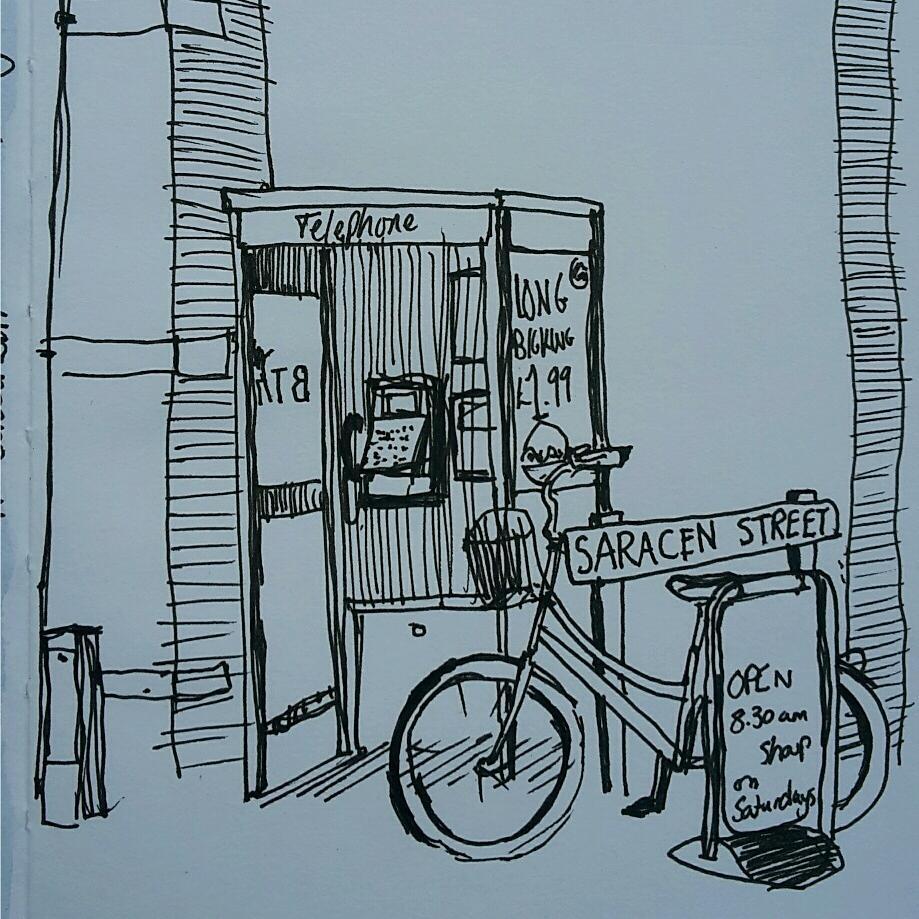 Telephone
BT
LONG
BIGKING
£1.99
SARACEN STREET
OPEN
8.30am
sharp
on
Saturdays